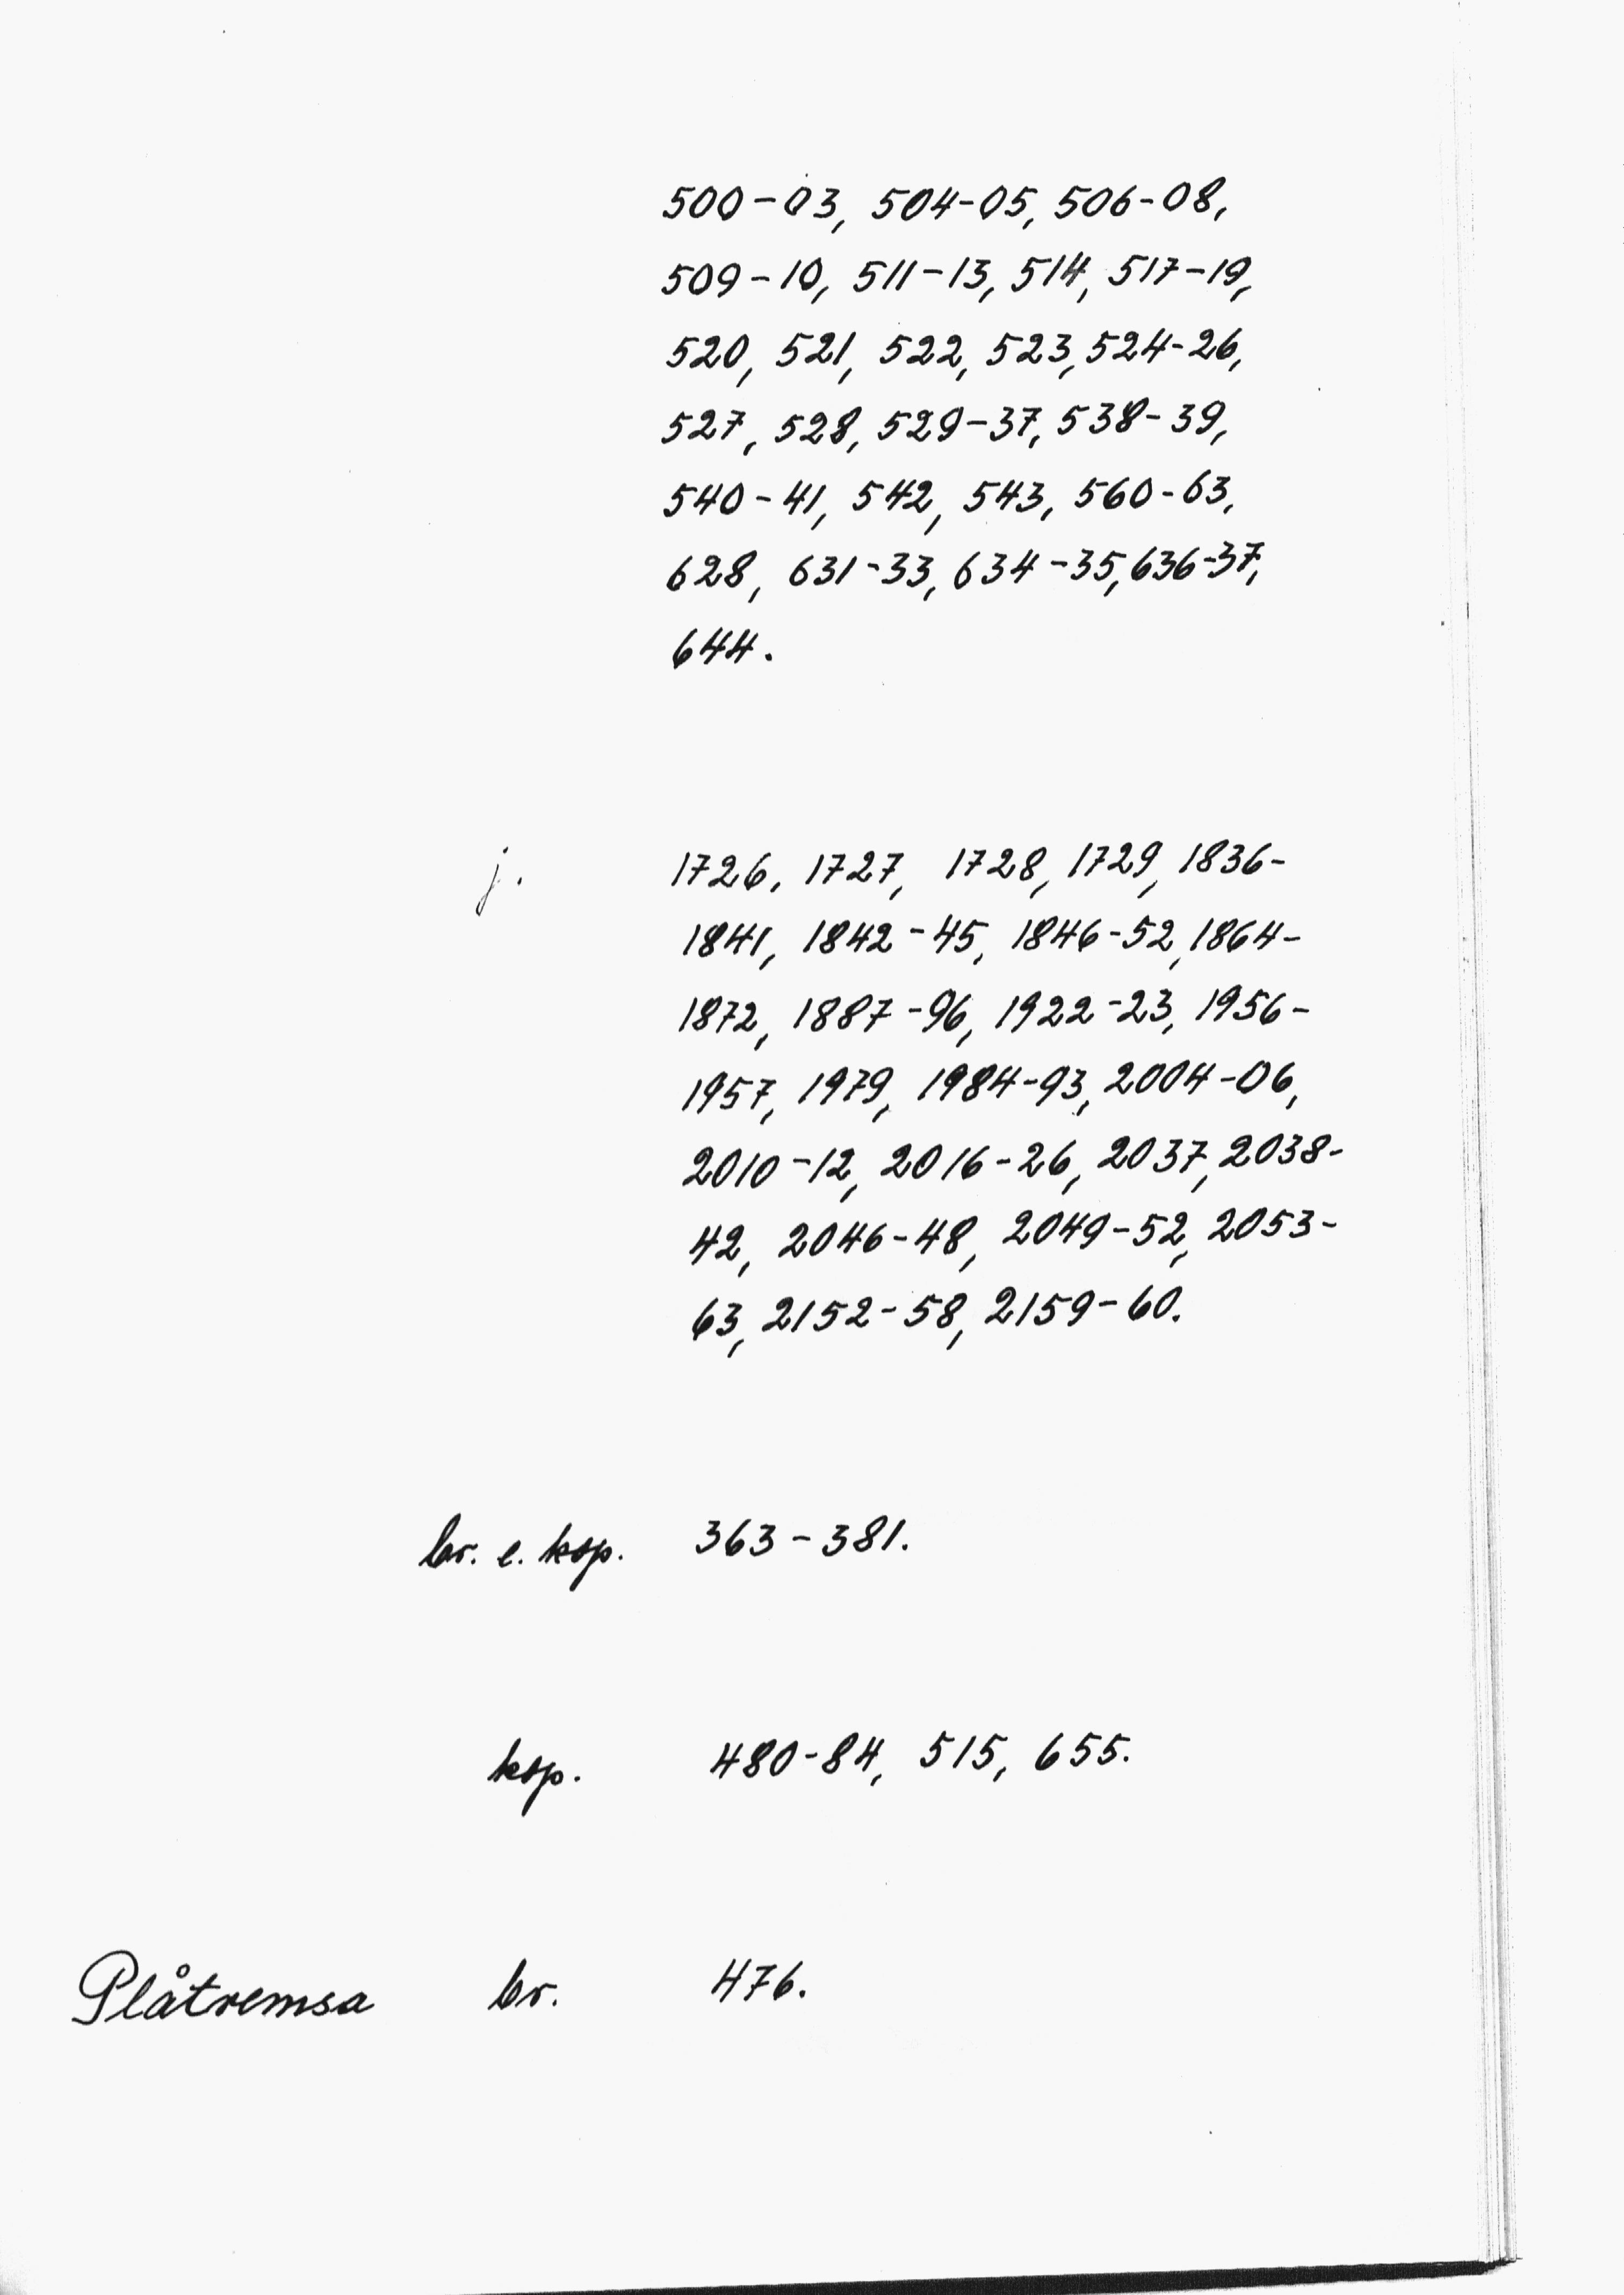 500-03, 504-05, 506-08,
509-10, 511-13, 514, 517-19,
520, 521, 522, 523, 524-26,
527, 528, 529-37, 538-39,
540-41, 542, 543, 560-63,
628, 631-33, 634-35, 636-37,
644.
j. 1726, 1727, 1728, 1729, 1836-
1841, 1842-45, 1846-52, 1864-
1872, 1887-96, 1922-23, 1956-
1957, 1979, 1984-93, 2004-06,
2010-12, 2016-26, 2037, 2038-
42, 2046-48, 2049-52, 2053-
63, 2152-58, 2159-60.
br. e. kop. 363-381.
kop. 480-84, 515, 655.
Plåtremsa br. 476.